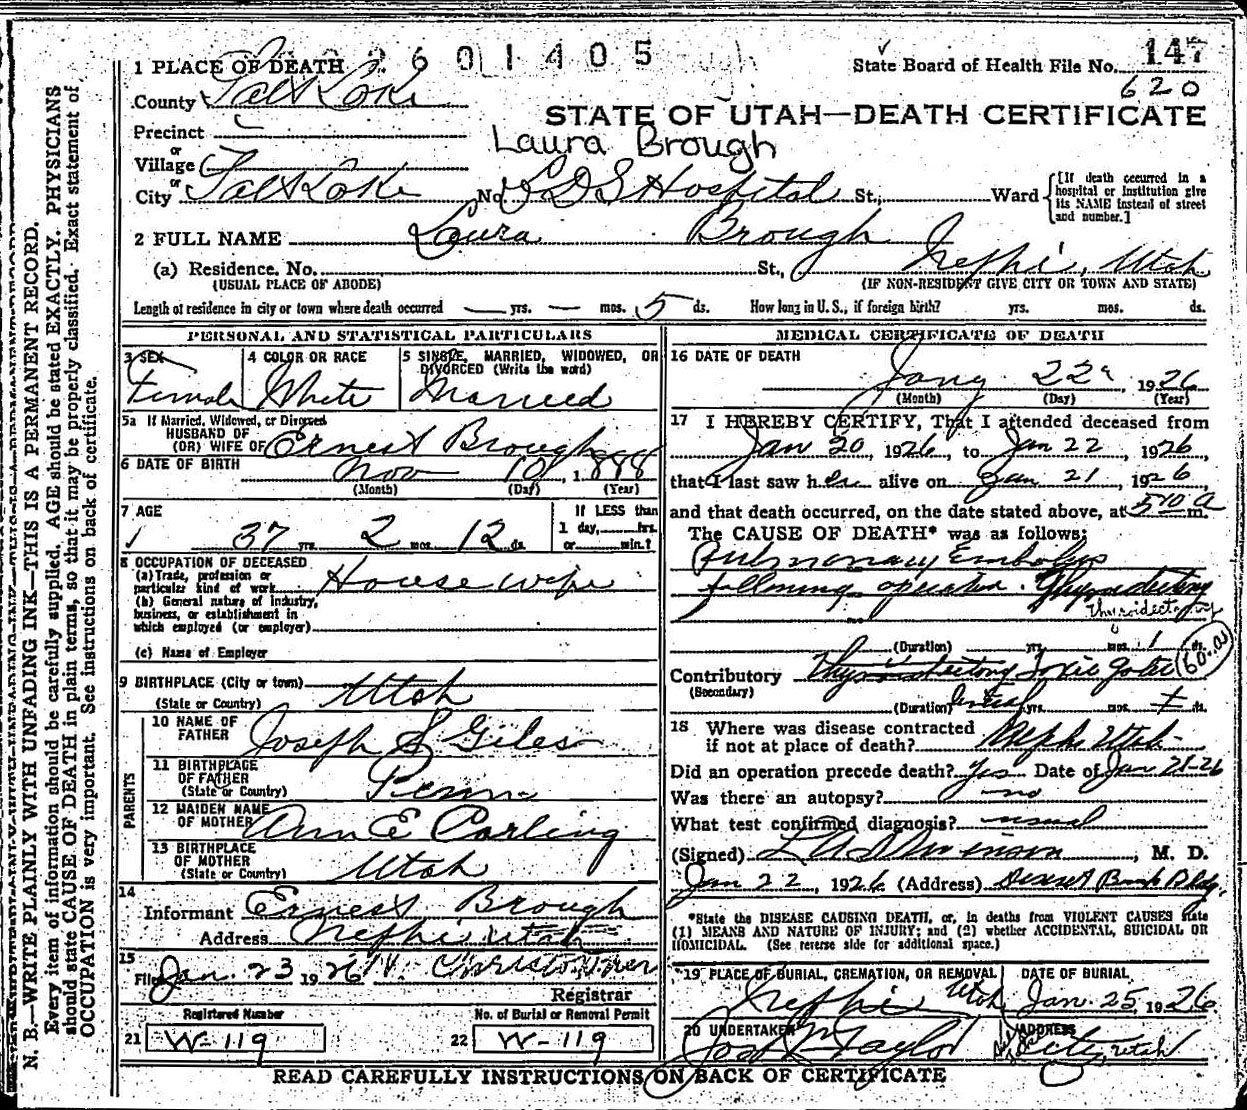 2601405
1 PLACE OF DEATH
State Board of Health File No. 147
620
County Salt Lake
STATE OF UTAH—DEATH CERTIFICATE
Precinct
Laura Brough
or
Village
or
City Salt Lake No. L D S Hospital St., Ward
[If death occurred in a hospital or institution give its NAME instead of street and number.]
2 FULL NAME Laura Brough
(a) Residence. No. St., Nephi, Utah
(USUAL PLACE OF ABODE) (IF NON-RESIDENT GIVE CITY OR TOWN AND STATE)
Length of residence in city or town where death occurred — yrs. — mos. 5 ds. How long in U.S., if foreign birth? yrs. mos. ds.
PERSONAL AND STATISTICAL PARTICULARS
3 SEX
Female
4 COLOR OR RACE
White
5 SINGLE, MARRIED, WIDOWED, OR DIVORCED (Write the word)
Married
5a If Married, Widowed, or Divorced
HUSBAND OF
(OR) WIFE OF Ernest Brough
6 DATE OF BIRTH Nov 10 1888
(Month) (Day) (Year)
7 AGE
37 yrs. 2 mos. 12 ds.
If LESS than
1 day, hrs.
or min.?
8 OCCUPATION OF DECEASED
(a) Trade, profession or
particular kind of work House wife
(b) General nature of industry,
business, or establishment in
which employed (or employer)
(c) Name of Employer
9 BIRTHPLACE (City or town)
(State or Country) Utah
PARENTS
10 NAME OF
FATHER Joseph S Giles
11 BIRTHPLACE
OF FATHER
(State or Country) Penn
12 MAIDEN NAME
OF MOTHER Ann E Carling
13 BIRTHPLACE
OF MOTHER
(State or Country) Utah
14
Informant Ernest Brough
Address Nephi, Utah
15
Filed Jan. 23 1926
Registrar
Registered Number
21 W-119
No. of Burial or Removal Permit
22 W-119
MEDICAL CERTIFICATE OF DEATH
16 DATE OF DEATH
Jany 22 1926
(Month) (Day) (Year)
17 I HEREBY CERTIFY, That I attended deceased from
Jan 20, 1926, to Jan 22, 1926,
that I last saw her alive on Jan 21, 1926,
and that death occurred, on the date stated above, at 5 10 a m.
The CAUSE OF DEATH* was as follows:
Pulmonary Embolus
following operation. Thyroidectomy
Thyroidectomy
(Duration) yrs. mos. 1 ds.
Contributory Toxic goitre
(Secondary)
(Duration) yrs. mos. ds.
18 Where was disease contracted
if not at place of death? Nephi Utah
Did an operation precede death? Yes Date of Jan 21-26
Was there an autopsy? no
What test confirmed diagnosis? usual
(Signed) , M. D.
Jan 22, 1926 (Address) Deseret Bank Bldg.
*State the DISEASE CAUSING DEATH, or, in deaths from VIOLENT CAUSES state
(1) MEANS AND NATURE OF INJURY; and (2) whether ACCIDENTAL, SUICIDAL OR
HOMICIDAL. (See reverse side for additional space.)
19 PLACE OF BURIAL, CREMATION, OR REMOVAL
Nephi Utah
DATE OF BURIAL
Jan. 25 1926
20 UNDERTAKER
Taylor
ADDRESS
City, Utah
READ CAREFULLY INSTRUCTIONS ON BACK OF CERTIFICATE
N. B.—WRITE PLAINLY WITH UNFADING INK—THIS IS A PERMANENT RECORD.
Every item of information should be carefully supplied. AGE should be stated EXACTLY. PHYSICIANS
should state CAUSE OF DEATH in plain terms, so that it may be properly classified. Exact statement of
OCCUPATION is very important. See instructions on back of certificate.